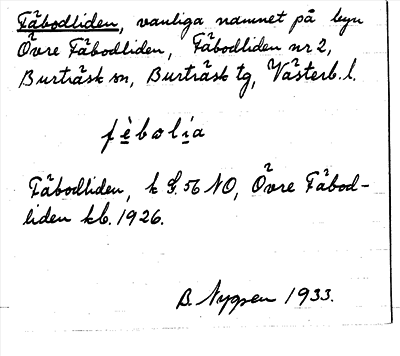 Fäbodliden, vanliga namnet på byn
Övre Fäbodliden, Fäbodliden nr 2,
Burträsk sn, Burträsk tg, Västerb. l.
fèbolía
Fäbodliden, k G. 56 NO, Övre Fäbod-
liden kb. 1926.
B. Nygren 1933.